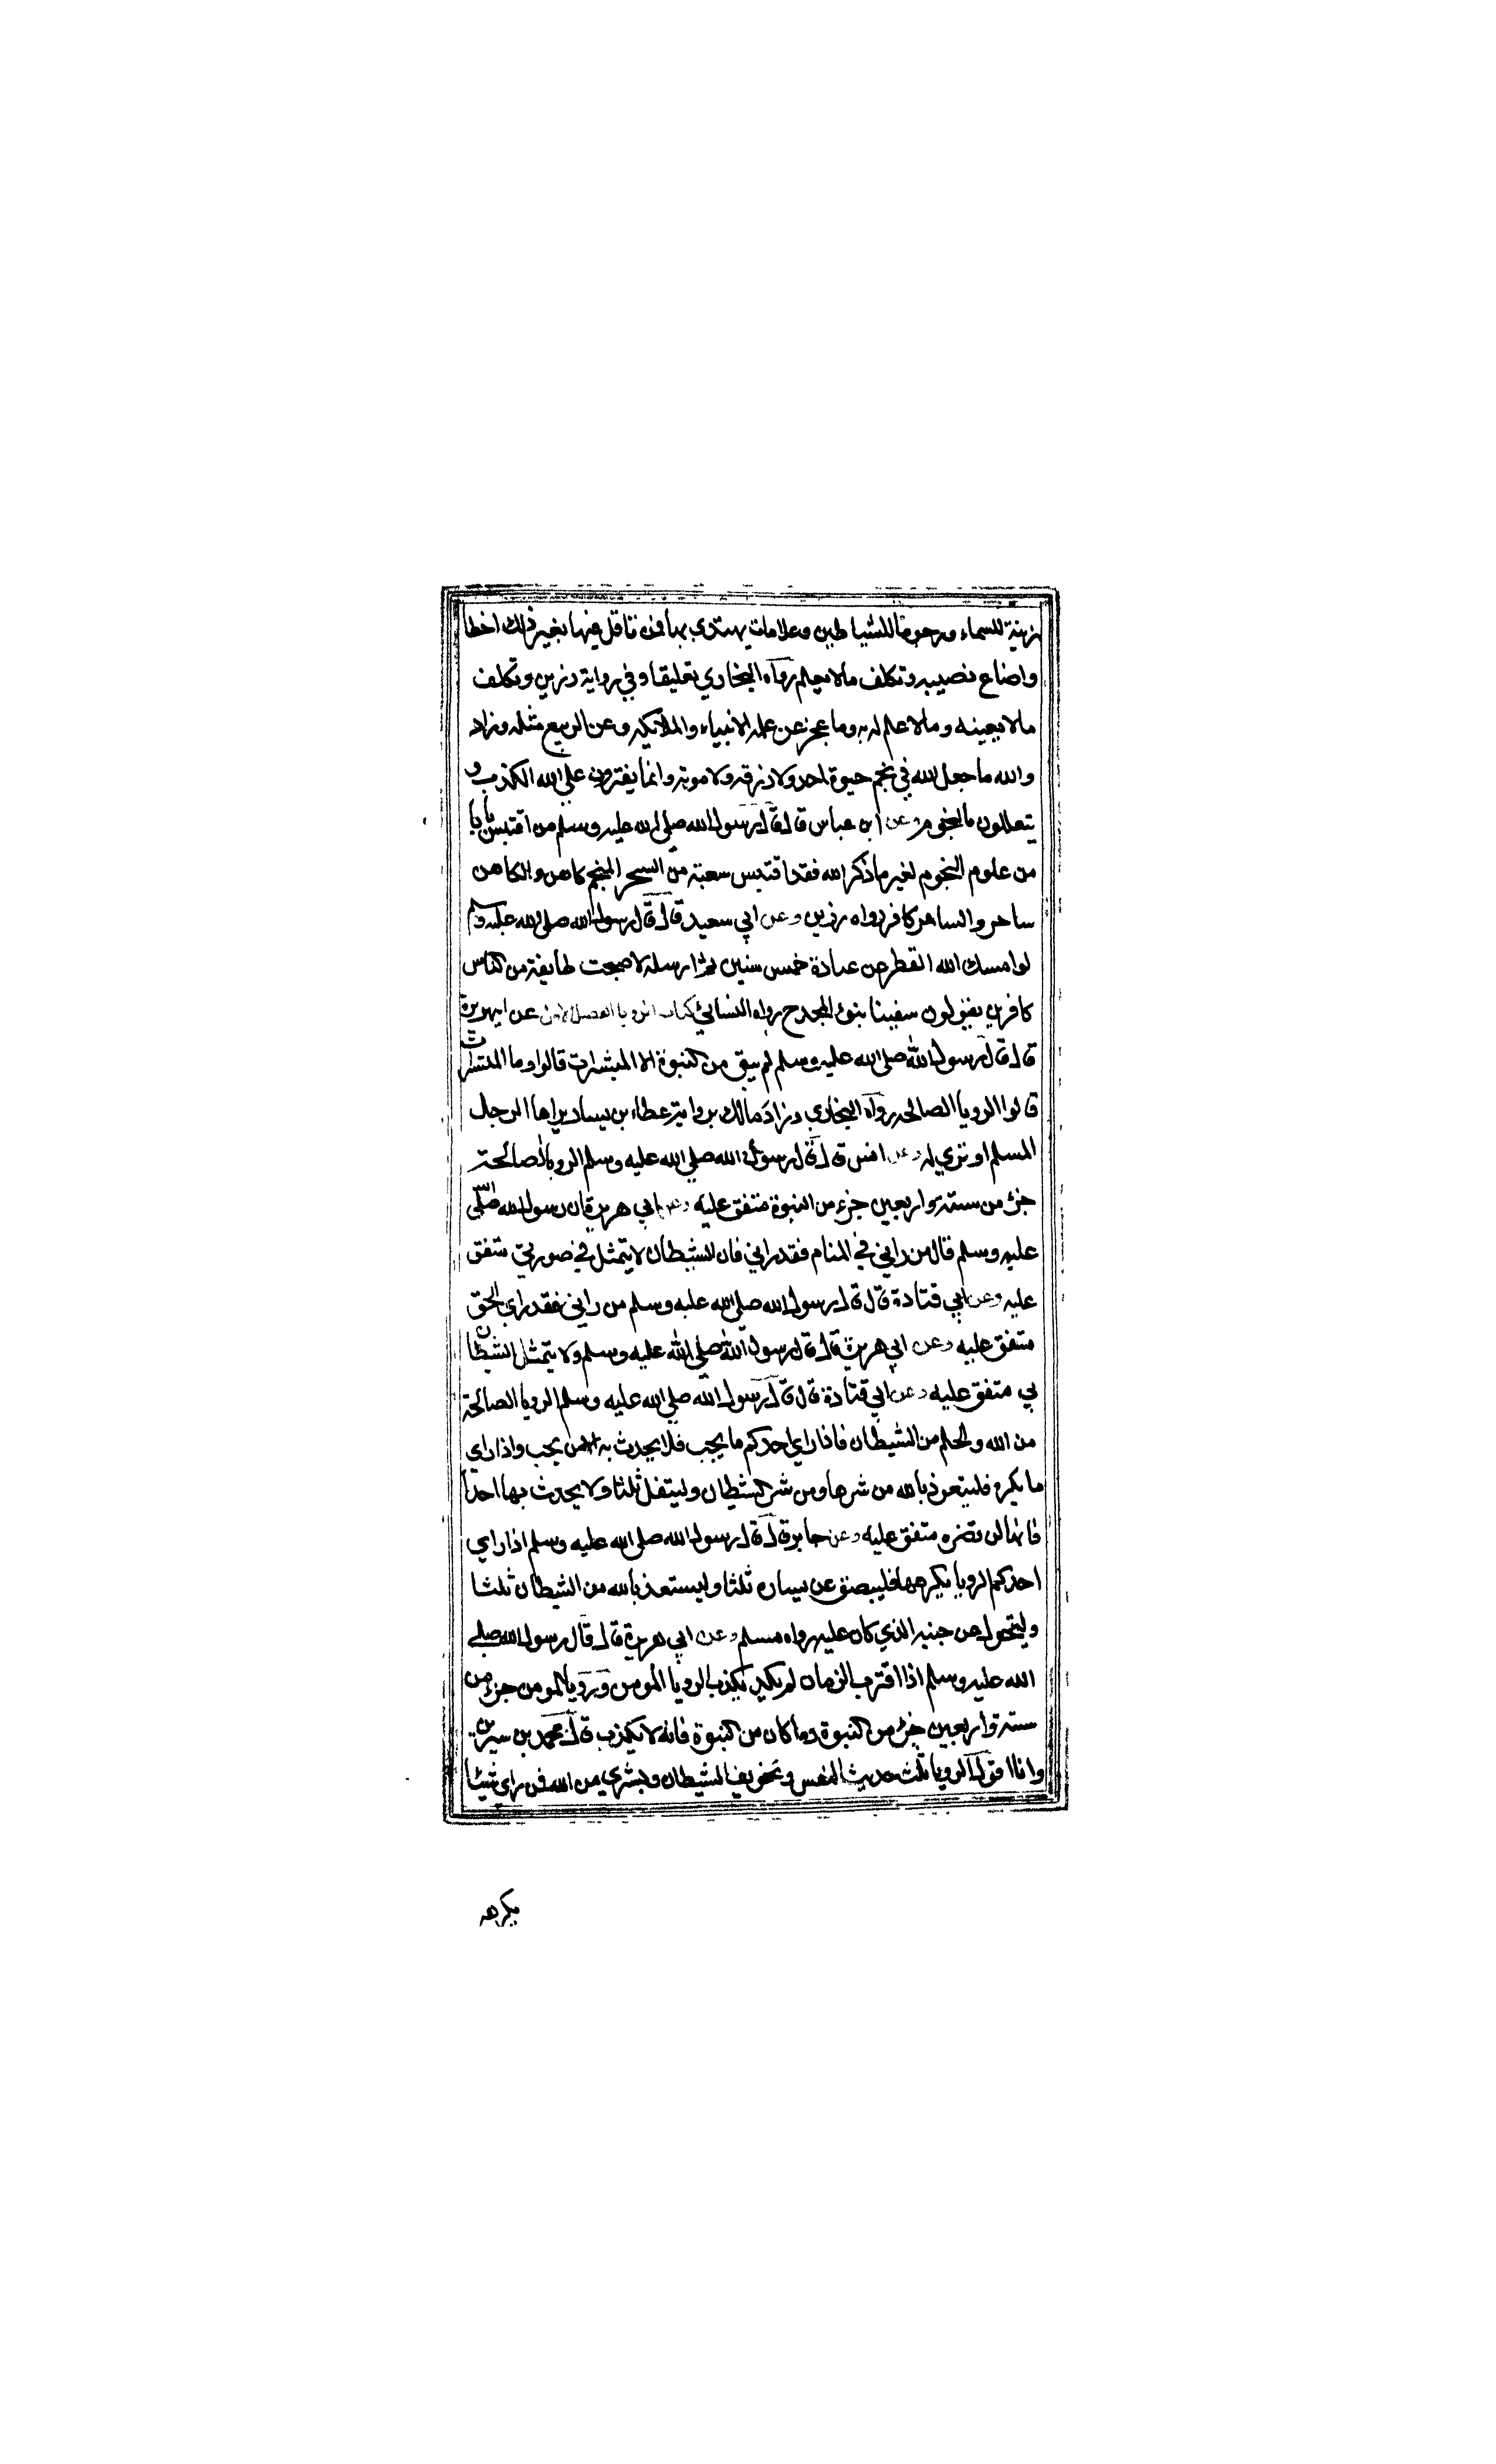 زينة للسماء ورجوما للشياطين وعلامات يهتدى بها فمن تاول فيها بغير ذلك اخطا
واضاع نصيبه وتكلف مالا يعلم رواه البخاري تعليقا وفي رواية رزين وتكلف
مالا يعينه وما لا علم له به وما عجز عن علمه الانبياء والملائكه وعن الربيع مثله وزاد
والله ما جعل الله في نجم حيوة احد ولا رزقه ولا موته وانما يفترون علي الله الكذب و
يتعللون بالنجوم وعن ابن عباس قال قال رسول الله صلي الله عليه وسلم من اقتبس بابا
من علوم النجوم لغير ما ذكر الله فقد اقتبس سعبة من السحر المنجم كاهن والكاهن
ساحر والساحر كافر رواه رزين وعن ابي سعيد قال قال رسول الله صلي الله عليه وسلم
لو امسك الله القطر عن عبادة خمس سنين ثم ارسله لاصبحت طايفة من الناس
كافرين يقولون سقينا بنوء المجدح رواه النسائي كتاب الرويا الفصل الاول عن ابي هريرة
قال قال رسول الله صلي الله عليه وسلم لم يبق من النبوة الا المبشرات قالوا وما المبشرات
قالوا الرويا الصالحه رواه البخاري وزاد مالك بروايتر عطاء بن يسار يراها الرجل
المسلم او تري له وعن انس قال قال رسول الله صلي الله عليه وسلم الرويا الصالحة
جزء من ستة واربعين جزء من النبوة متفق عليه وعن ابي هريرة ان رسول الله صلي الله
عليه وسلم قال من راني في المنام فقد راني فان الشيطان لا يتمثل في صورتي متفق
عليه وعن ابي قتادة قال قال رسول الله صلي الله عليه وسلم من راني فقد راي الحق
متفق عليه وعن ابي هريرة قال قال رسول الله صلي الله عليه وسلم ولا يتمثل الشيطان
بي متفق عليه وعن ابي قتادة قال قال رسول الله صلي الله عليه وسلم الرويا الصالحة
من الله والحلم من الشيطان فاذا راي احدكم ما يحب فلا يحدث به الا من يحب واذا راي
ما يكره فليتعوذ بالله من شرها ومن شر الشيطان وليتفل ثلثا ولا يحدث بها احدا
فانها لن تضره متفق عليه وعن جابر قال قال رسول الله صلي الله عليه وسلم اذا راي
احدكم الرويا يكرهها فليبصق عن يساره ثلثا وليستعذ بالله من الشيطان ثلثا
وليتحول عن جنبه الذي كان عليه رواه مسلم وعن ابي هريرة قال قال رسول الله صلي
الله عليه وسلم اذا اقترب الزمان لم يكد يكذب الرويا المومن ورويا المومن جزء من
ستة واربعين جزء من النبوة وما كان من النبوة فانه لا يكذب قال محمد بن سيرين
وانا اقول الرويا ثلث حديث النفس وتخويف الشيطان وبشري من الله فمن راي شيئا
يكرهه